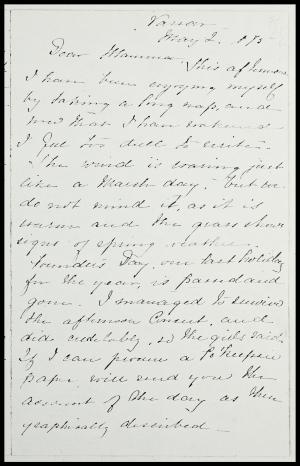 Vassar
May 2. 1875
Dear Mamma,
This afternoon
I have been enjoying myself
by taking a long nap, and
now that I have wakened
I feel too dull to write.
The wind is roaring just
like a March day, but we
do not mind it, as it is
warm and the grass shows
signs of spring weather.
Founders' Day, our last holiday
for the year, is passed and
gone. I managed to survive
the afternoon Concert, and
did creditably, so the girls said.
If I can procure a Po'keepsie
Paper, will send you the
account of the day as there
graphically described —